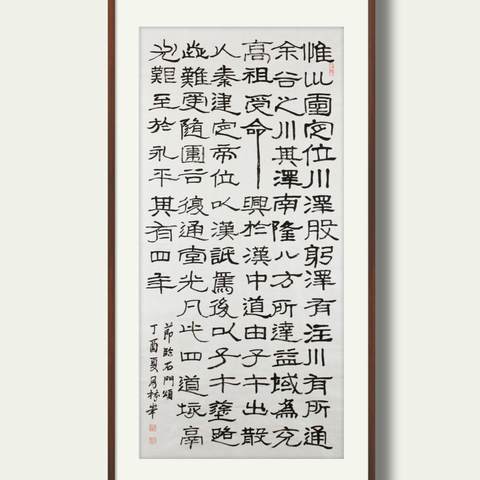 惟巛靈定位川澤股躬澤有注川有所通
余谷之川其澤南隆八方所達益域為充
高祖受命興於漢中道由子午出散
入秦建定帝位以漢詆焉後以子午塗路
澀難更隨圍谷復通堂光凡此四道垓鬲
尤艱至於永平其有四年
節臨石門頌
丁酉夏月